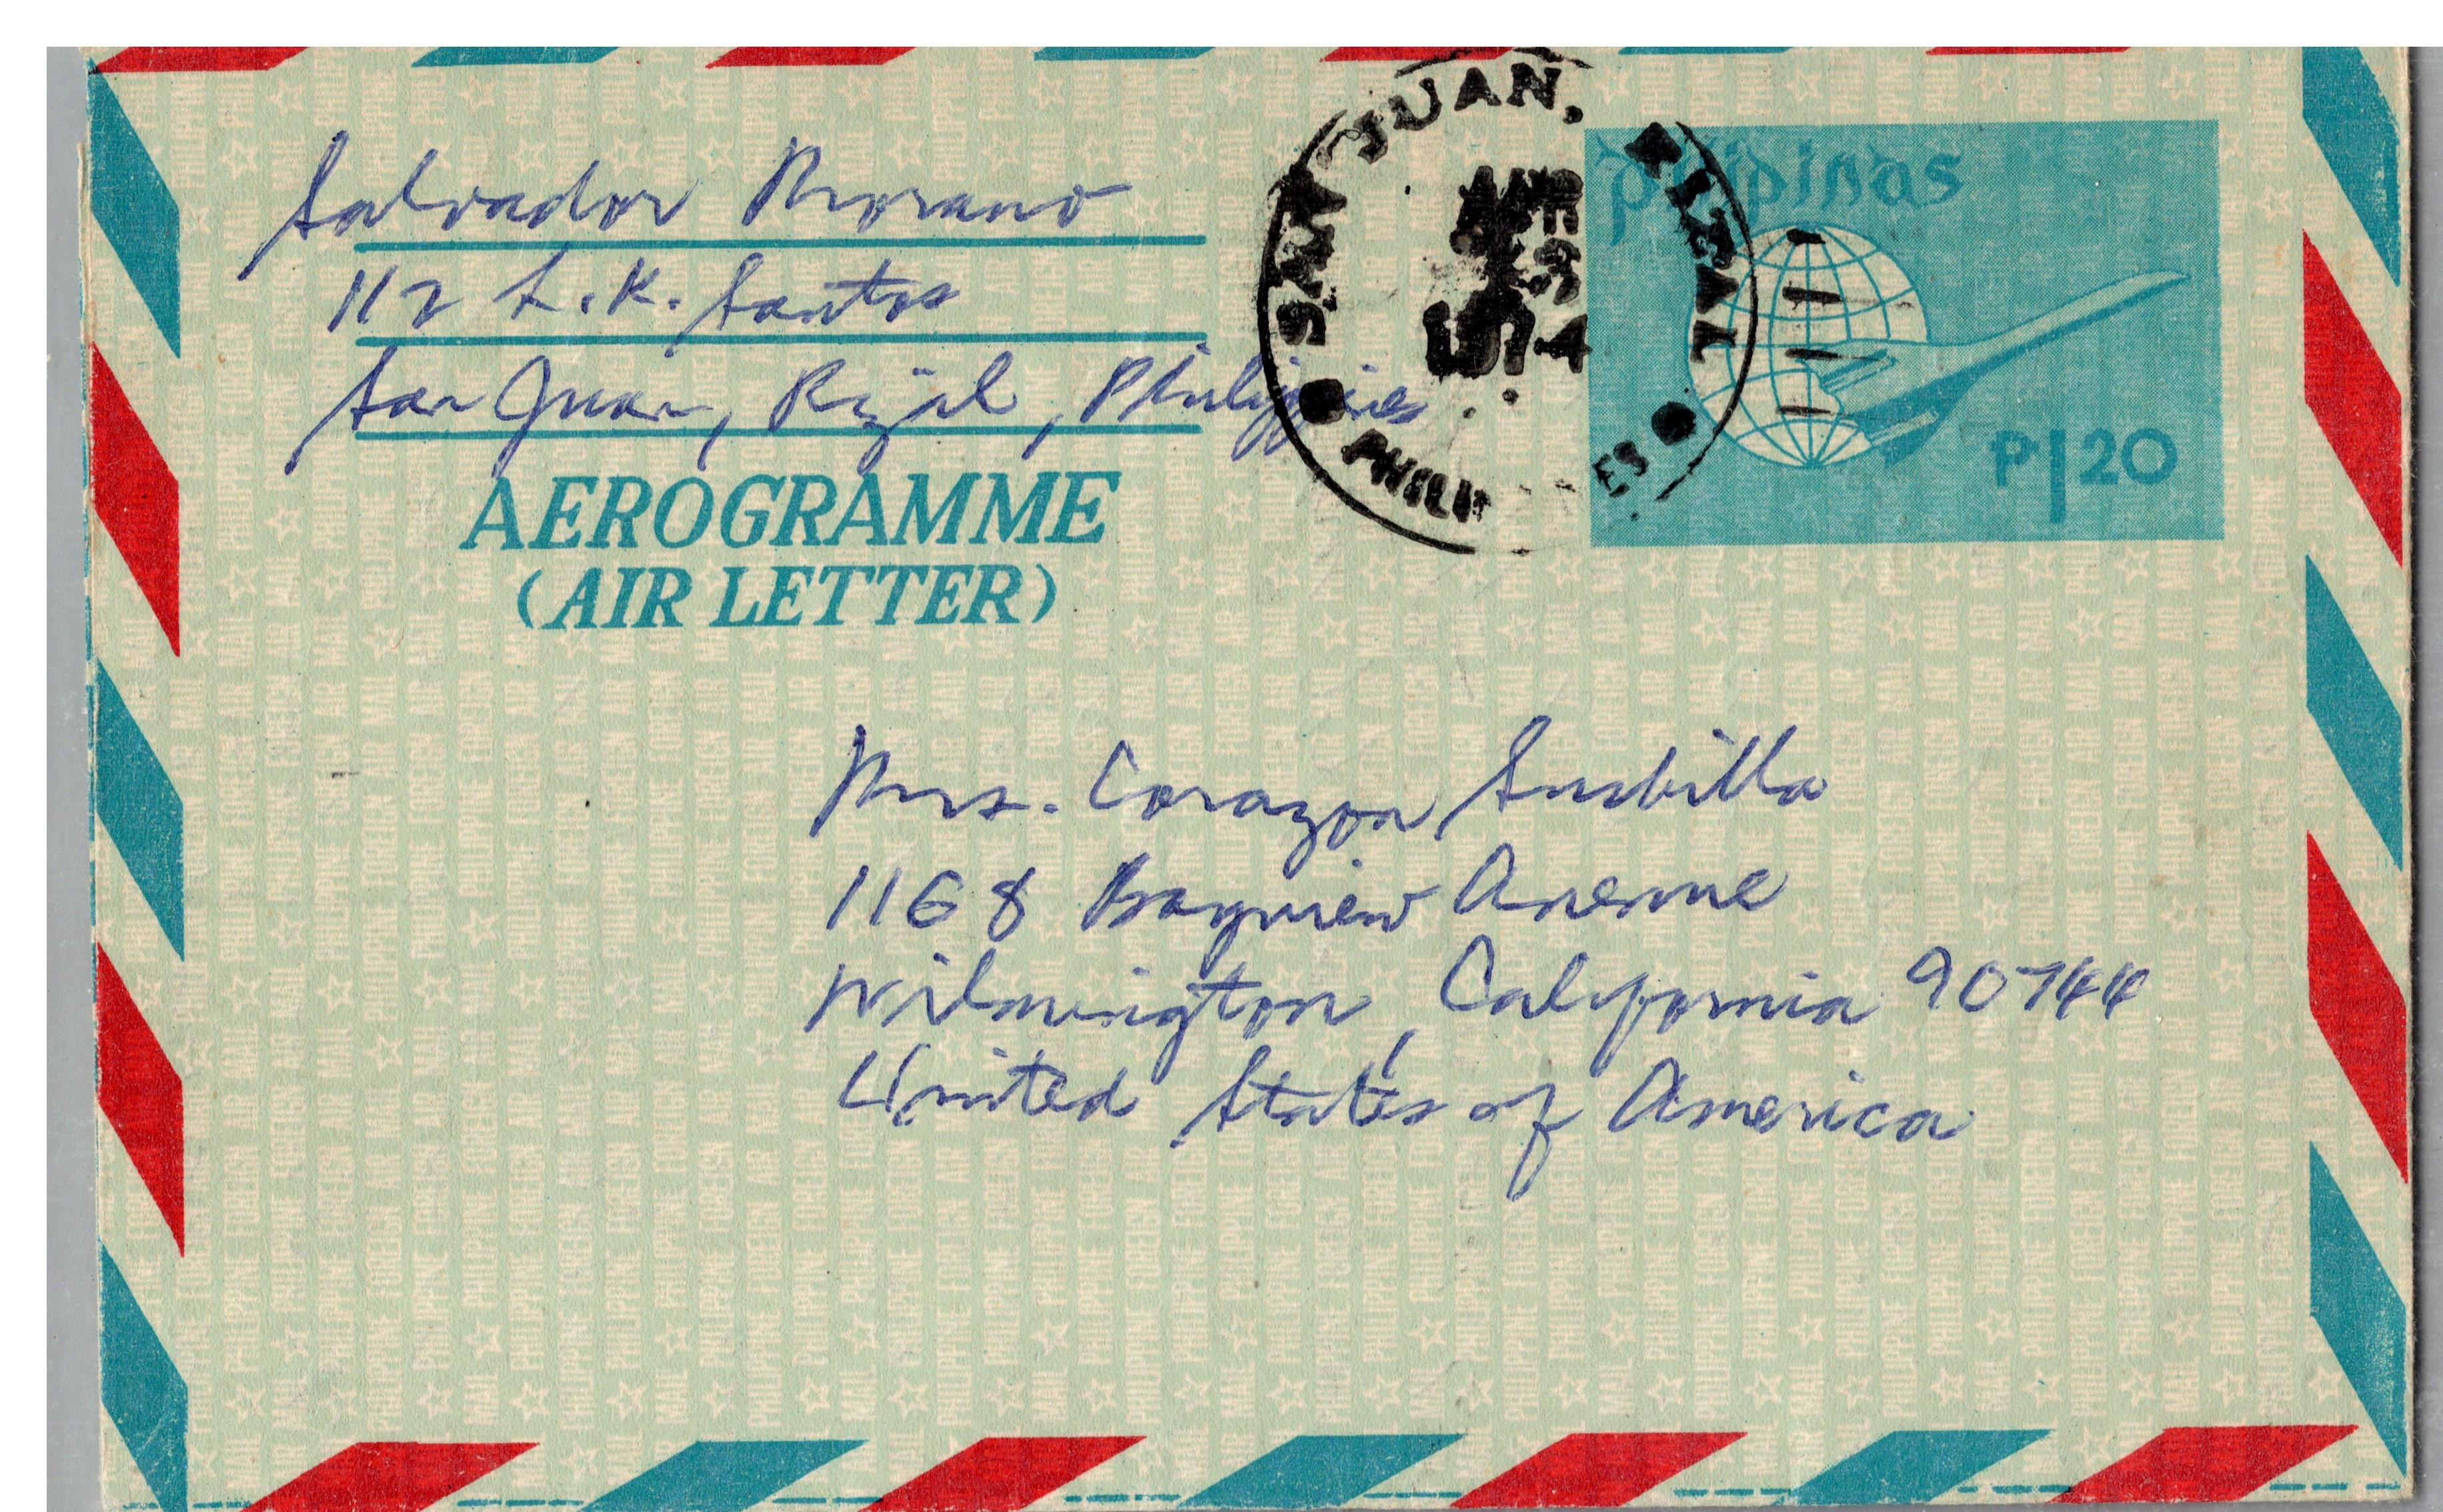 Salvador Morano
112 L.K. Santos
San Juan, Rizal, Philippines
AEROGRAMME
(AIR LETTER)
SAN JUAN, RIZAL
PHILIPPINES
pilipinas
P1 20
Mrs. Corazon Susbilla
1168 Bayview Avenue
Wilmington, California 90744
United States of America